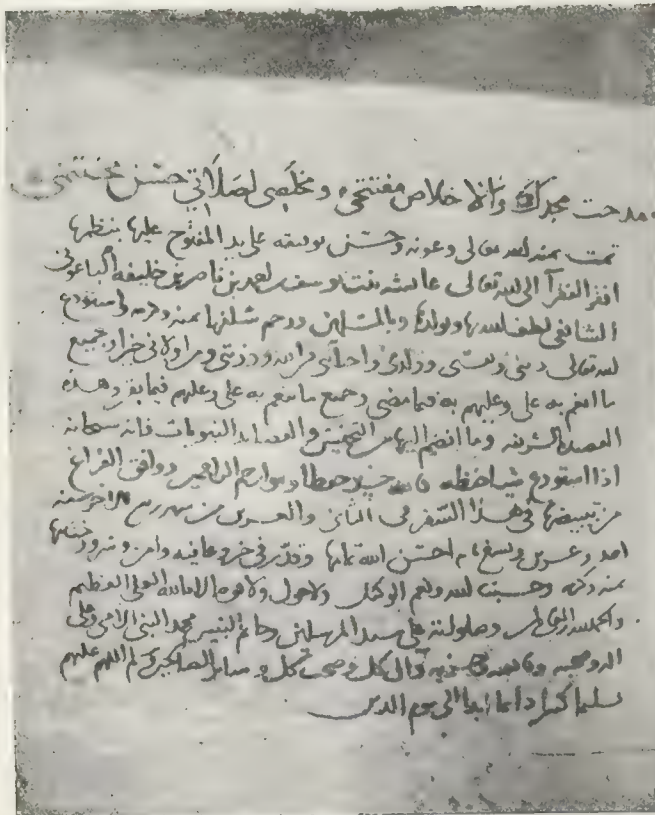 مدحت مجدك والاخلاص مفتتحي ومخلصي لصلاتي حسن مختتمي
تمت بمنه لله تعالى وعونه وحسن توفيقه على يد المفتوح عليها بنظمها
افقر الفقرآ الى لله تعالى عائشه بنت يوسف بن احمد بن ناصر بن خليفه الباعوني
الشافعي لطف لله بها وبولدها وبالمسلمين ورحم سلفها بمنه وكرمه واستودع
لله تعالى ديني ونفسي وولدي واحبابي وذريتي وجميع
ما انعم به علي وعليهم به فيما مضى وجميع ما ينعم به علي وعليهم فيما بقي وهذه
القصيدة الشريفه وما انضم اليها من التخميس والقصايد النبويات فانه سبحانه
اذا استودع شيا حفظه فالله خير حفظا وهو ارحم الراحمين ووافق الفراغ
من تبييضها في هذا السفر في الثاني والعشرين من شهر ربيع الاخر سنه
احد وعشرين وتسع ما احسن الله وقدر في خير وعافيه وامن وسرور
بمنه وكرمه وحسبنا لله ونعم الوكيل ولا حول ولا قوه الا بالله العلي العظيم
والحمد لله وصلواته على سيد المرسلين وخاتم النبيين محمد النبي الامي وعلى
اله وصحبه وال كل وصحب كل وساير الصالحين وسلم اللهم عليهم
تسليما كثيرا دائما ابدا الى يوم الدين